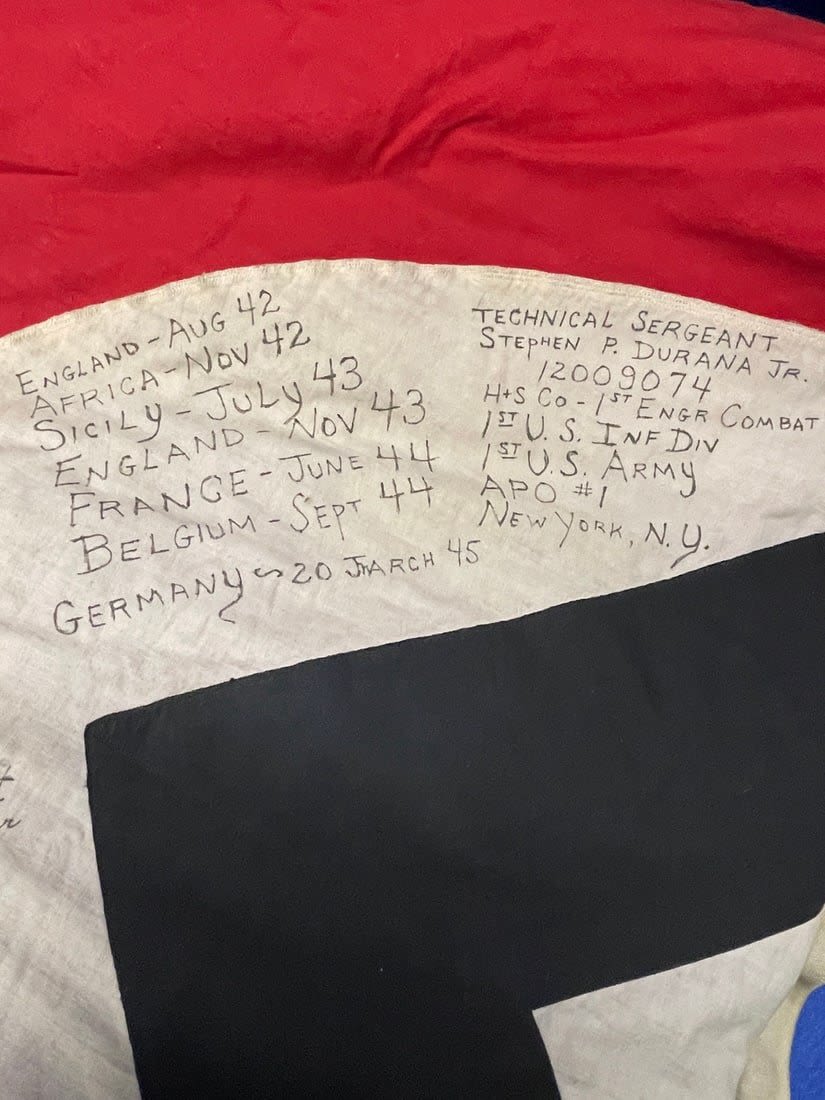 ENGLAND - AUG 42
AFRICA - NOV 42
SICILY - JULY 43
ENGLAND - NOV 43
FRANCE - JUNE 44
BELGIUM - SEPT 44
GERMANY ~ 20 MARCH 45
TECHNICAL SERGEANT
STEPHEN P. DURANA JR.
12009074
H+S CO - 1ST ENGR COMBAT
1ST U. S. INF DIV
1ST U. S. ARMY
APO #1
NEW YORK, N. Y.